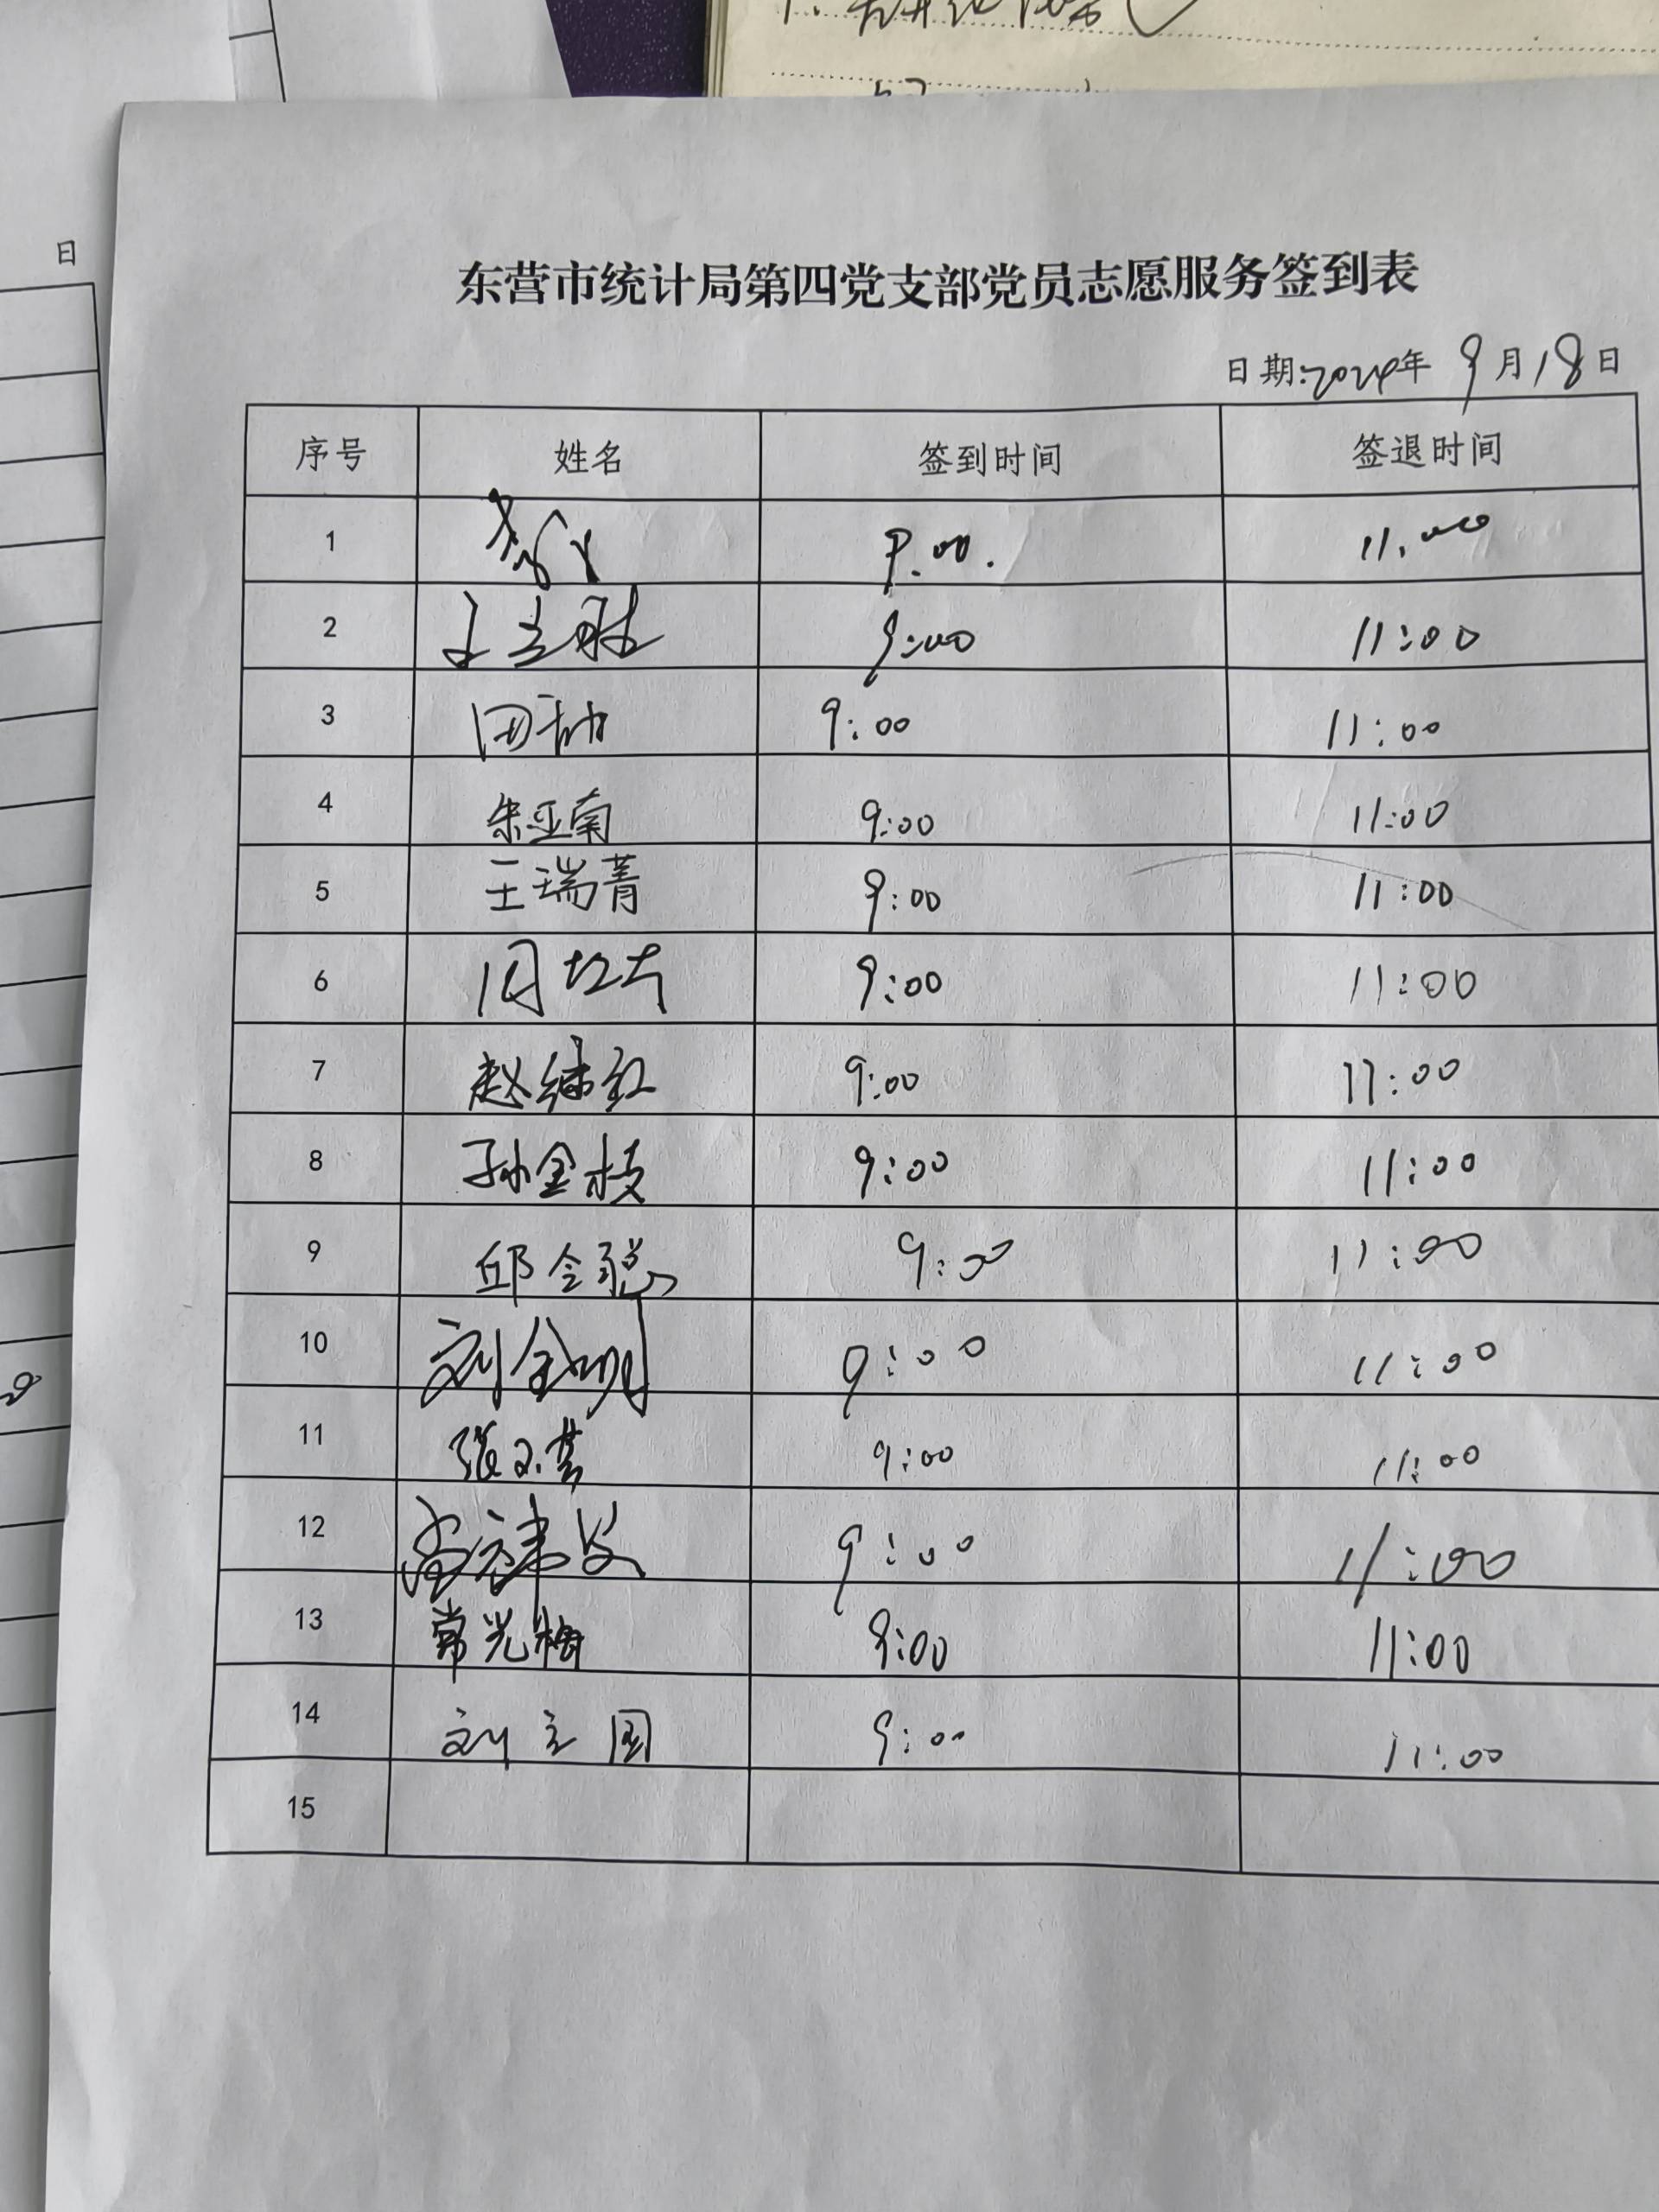 日
东营市统计局第四党支部党员志愿服务签到表
日期:2024年 9月18日
序号 姓名 签到时间 签退时间
1 9.00. 11.00
2 9:00 11:00
3 田 9:00 11:00
4 朱亚南 9:00 11:00
5 王瑞菁 9:00 11:00
6 周 9:00 11:00
7 赵继红 9:00 11:00
8 孙金枝 9:00 11:00
9 邱令聪 9:00 11:00
10 刘金明 9:00 11:00
11 张 9:00 11:00
12 9:00 11:00
13 常光梅 9:00 11:00
14 刘立国 9:00 11:00
15